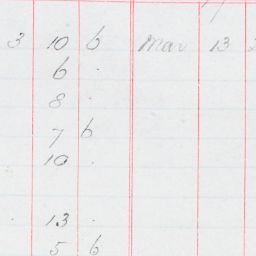 3 10 6 Mar 13
6 .
8 .
7 6
10 .
. 13 .
5 6